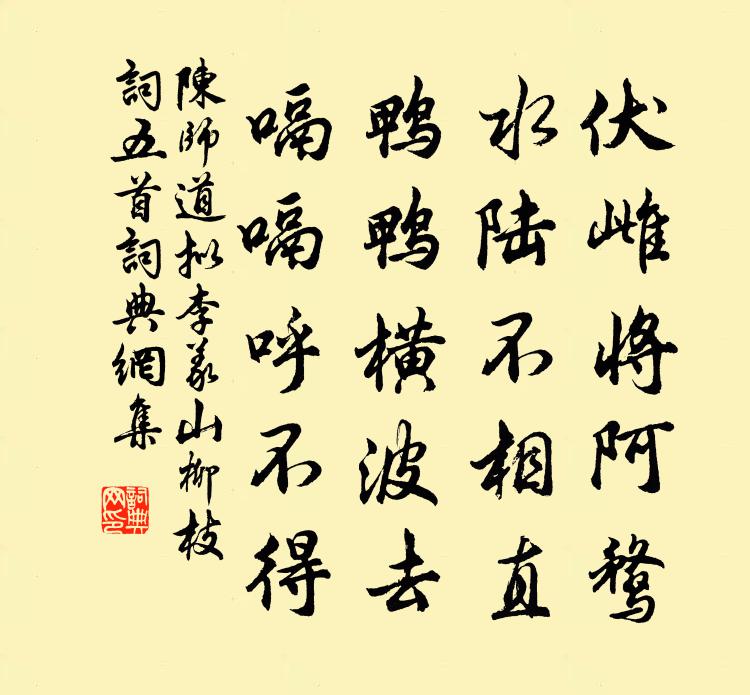 伏雌將阿鶩
水陆不相直
鴨鴨横波去
嗝嗝呼不得
陳師道拟李義山柳枝
詞五首詞典網集
詞典网印